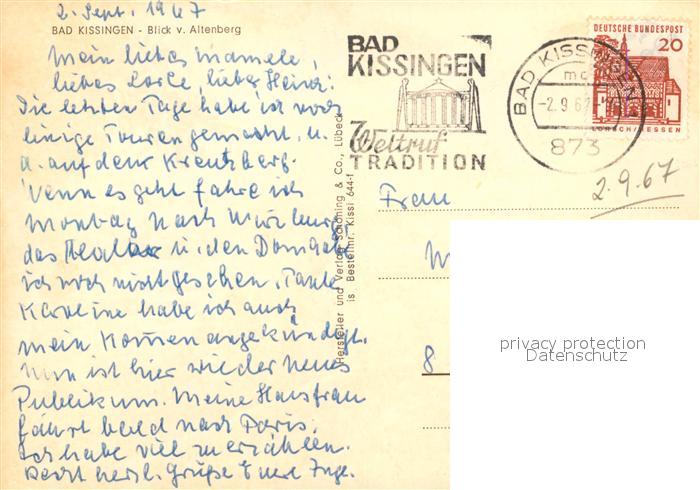 2. Sept. 1967
BAD KISSINGEN - Blick v. Altenberg
Mein liebes Mamele,
liebes Lorle, lieber Heinz!
Die letzten Tage habe ich noch
einige Touren gemacht, u.
a. auf dem Kreuzberg.
Wenn es geht fahre ich
Montag nach Würzburg,
das Theater u. den Dom habe
ich noch nicht gesehen. Tante
Karoline habe ich auch
mein Kommen angekündigt.
Nun ist hier wieder neues
Publikum. Meine Hausfrau
fährt bald nach Paris.
Ich habe viel zu erzählen.
Recht herzl. Grüße Eure Inge.
Hersteller und Verlag Schöning & Co., Lübeck
Bestellnr. Kissi 644-f
BAD
KISSINGEN
Weltruf
TRADITION
BAD KISSINGEN
mc
-2.9.67
873
DEUTSCHE BUNDESPOST
20
LORSCH/HESSEN
2.9.67
Frau
8
privacy protection
Datenschutz